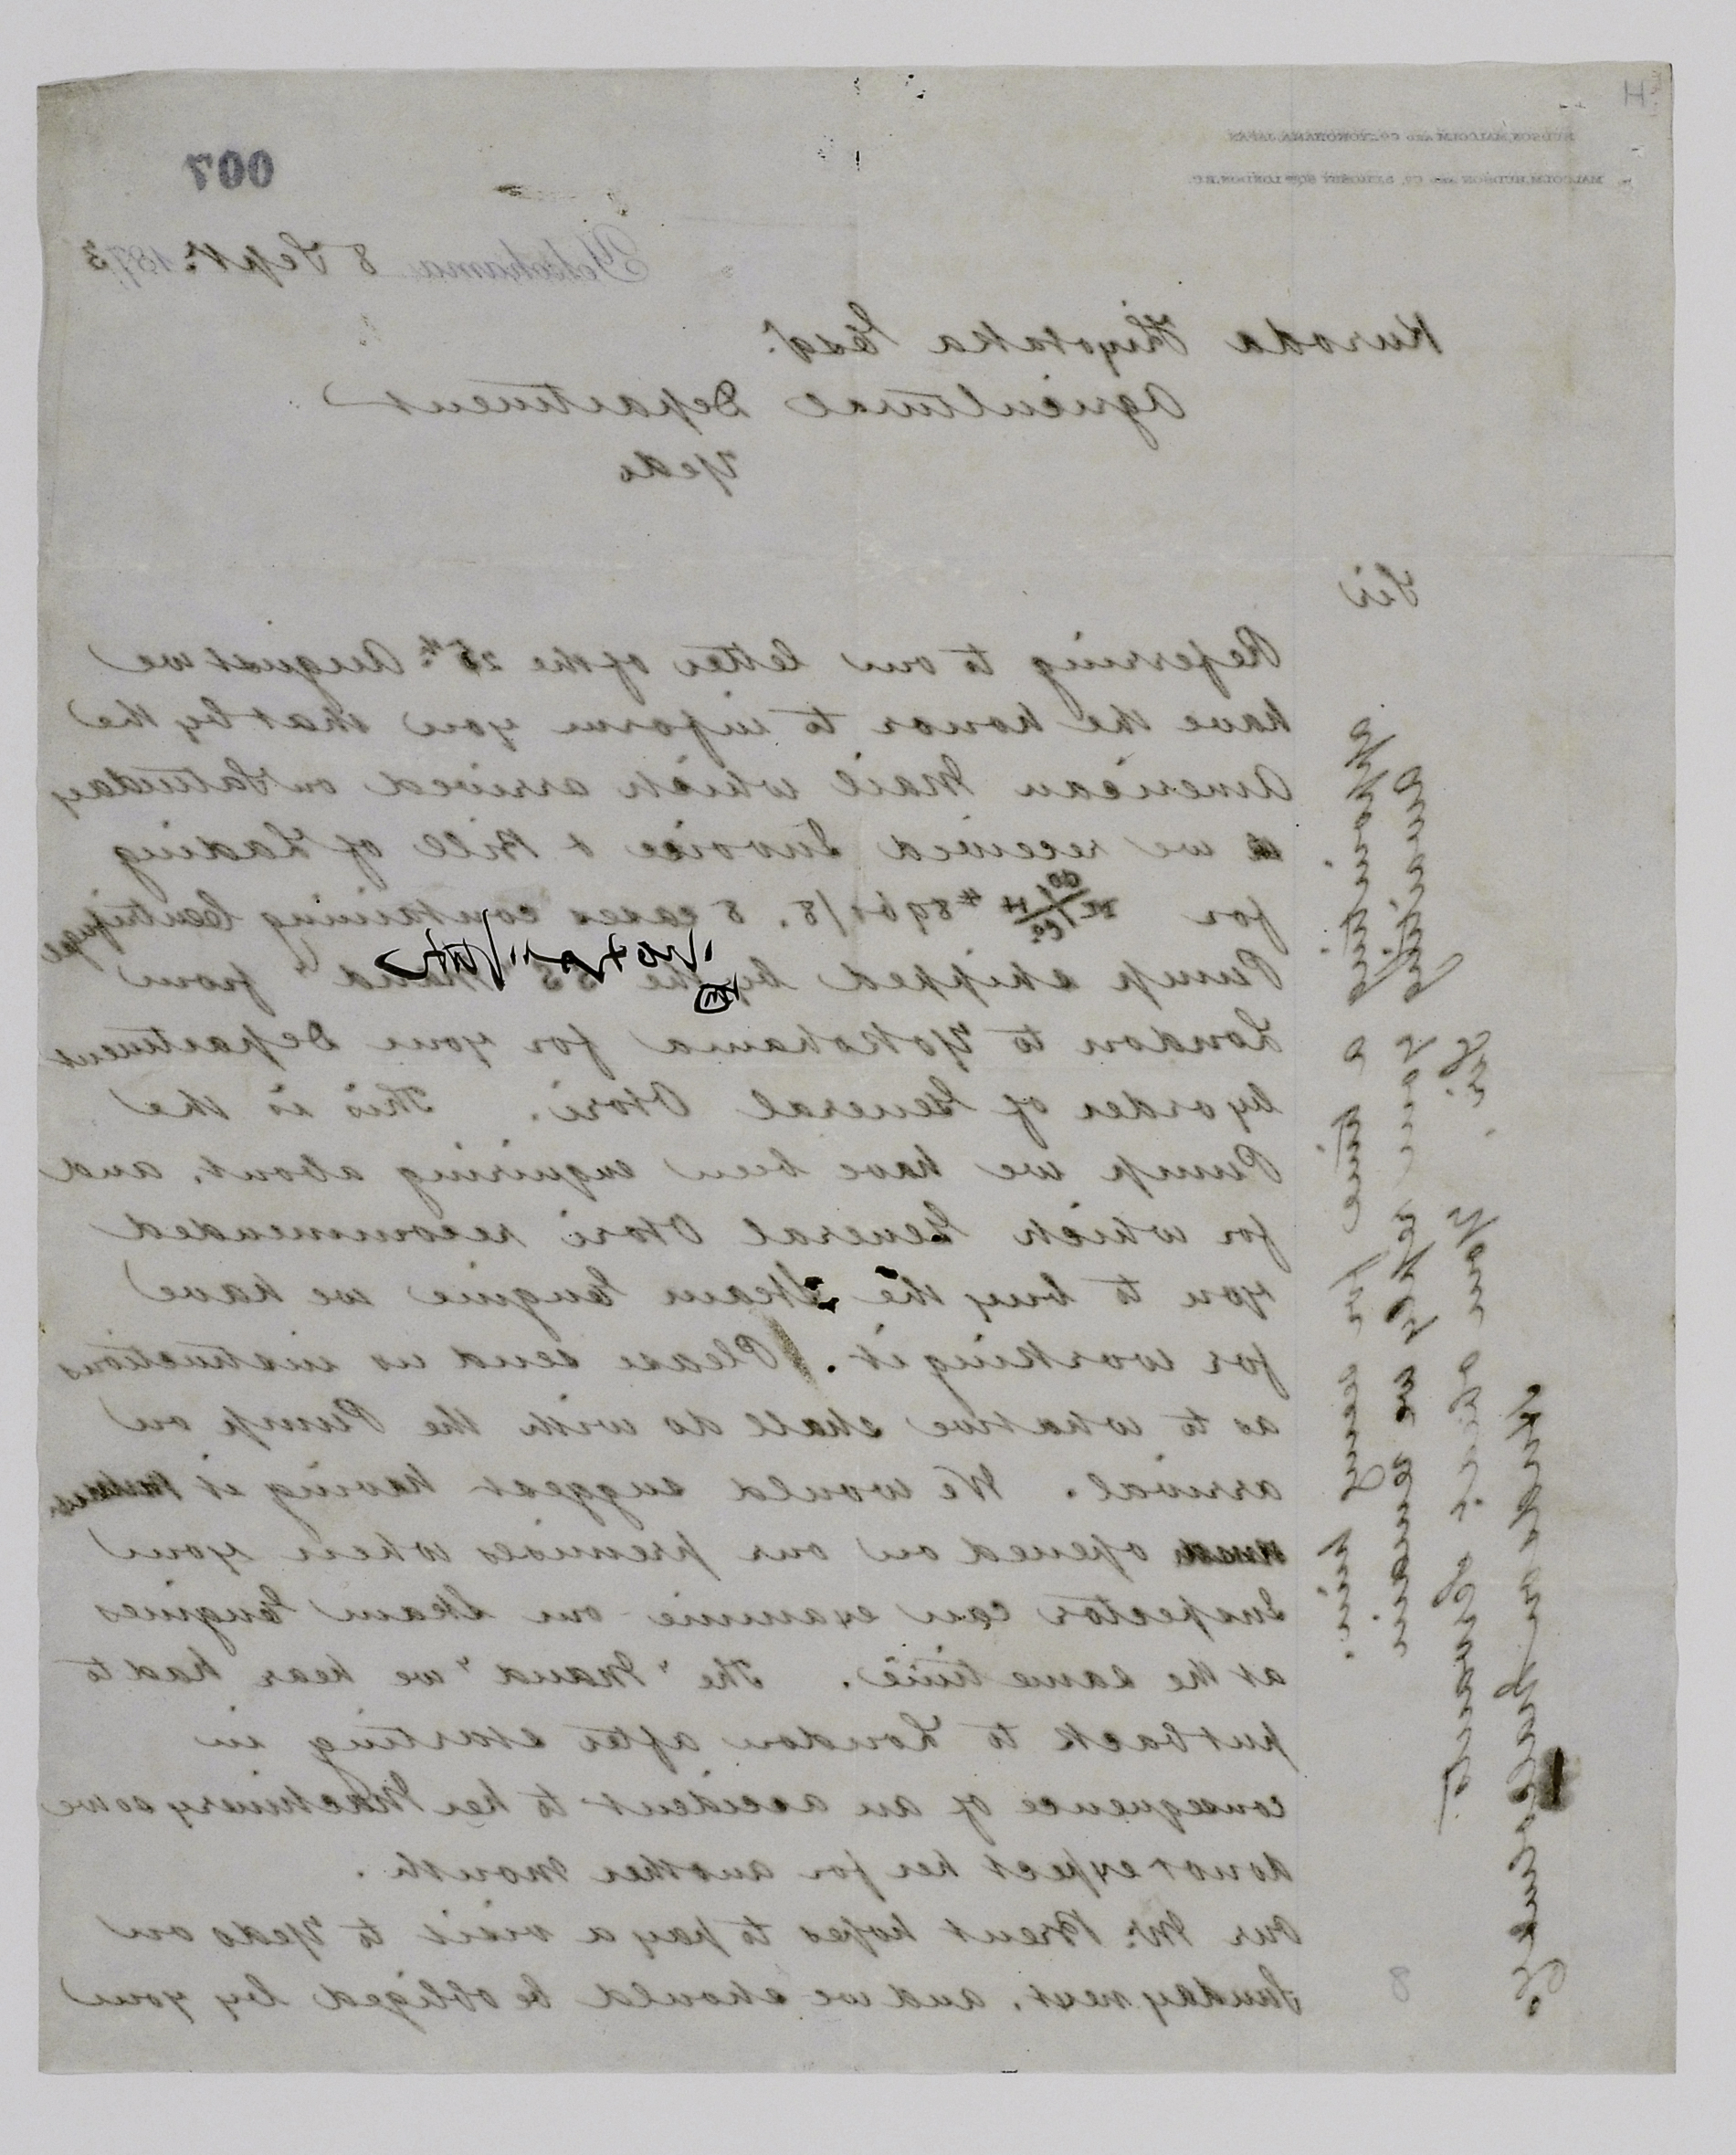 HUDSON, MALCOLM AND CO. YOKOHAMA, JAPAN.
MALCOLM, HUDSON AND CO. LONDON, E.C.
007
Yokohama 8 Sept: 1873
Kuroda Kiyotaka Esqr.
Agricultural Department
Yedo
Sir
Referring to our letter of the 28th August we
have the honor to inform you that by the
American Mail which arrived on Saturday
we received Invoice & Bill of Lading
for 8 cases containing Centrifugal
Pump shipped by the SS "Maud" from
London to Yokohama for your Department
by order of General Otori. This is the
Pump we have been enquiring about, and
for which General Otori recommended
you to buy the Steam Engine we have
for working it. Please send us instructions
as to what we shall do with the Pump on
arrival. We would suggest having it
opened on our premises when your
Inspector can examine our Steam Engines
at the same time. The "Maud" we hear had to
put back to London after starting in
consequence of an accident to her Machinery so we
do not expect her for another month.
Our Mr. Brent hopes to pay a visit to Yedo on
Sunday next, and we should be obliged by your
appointing a time to see him.
Awaiting your reply we remain
Sir
Your obedient Servants
Hudson Malcolm & Co
8